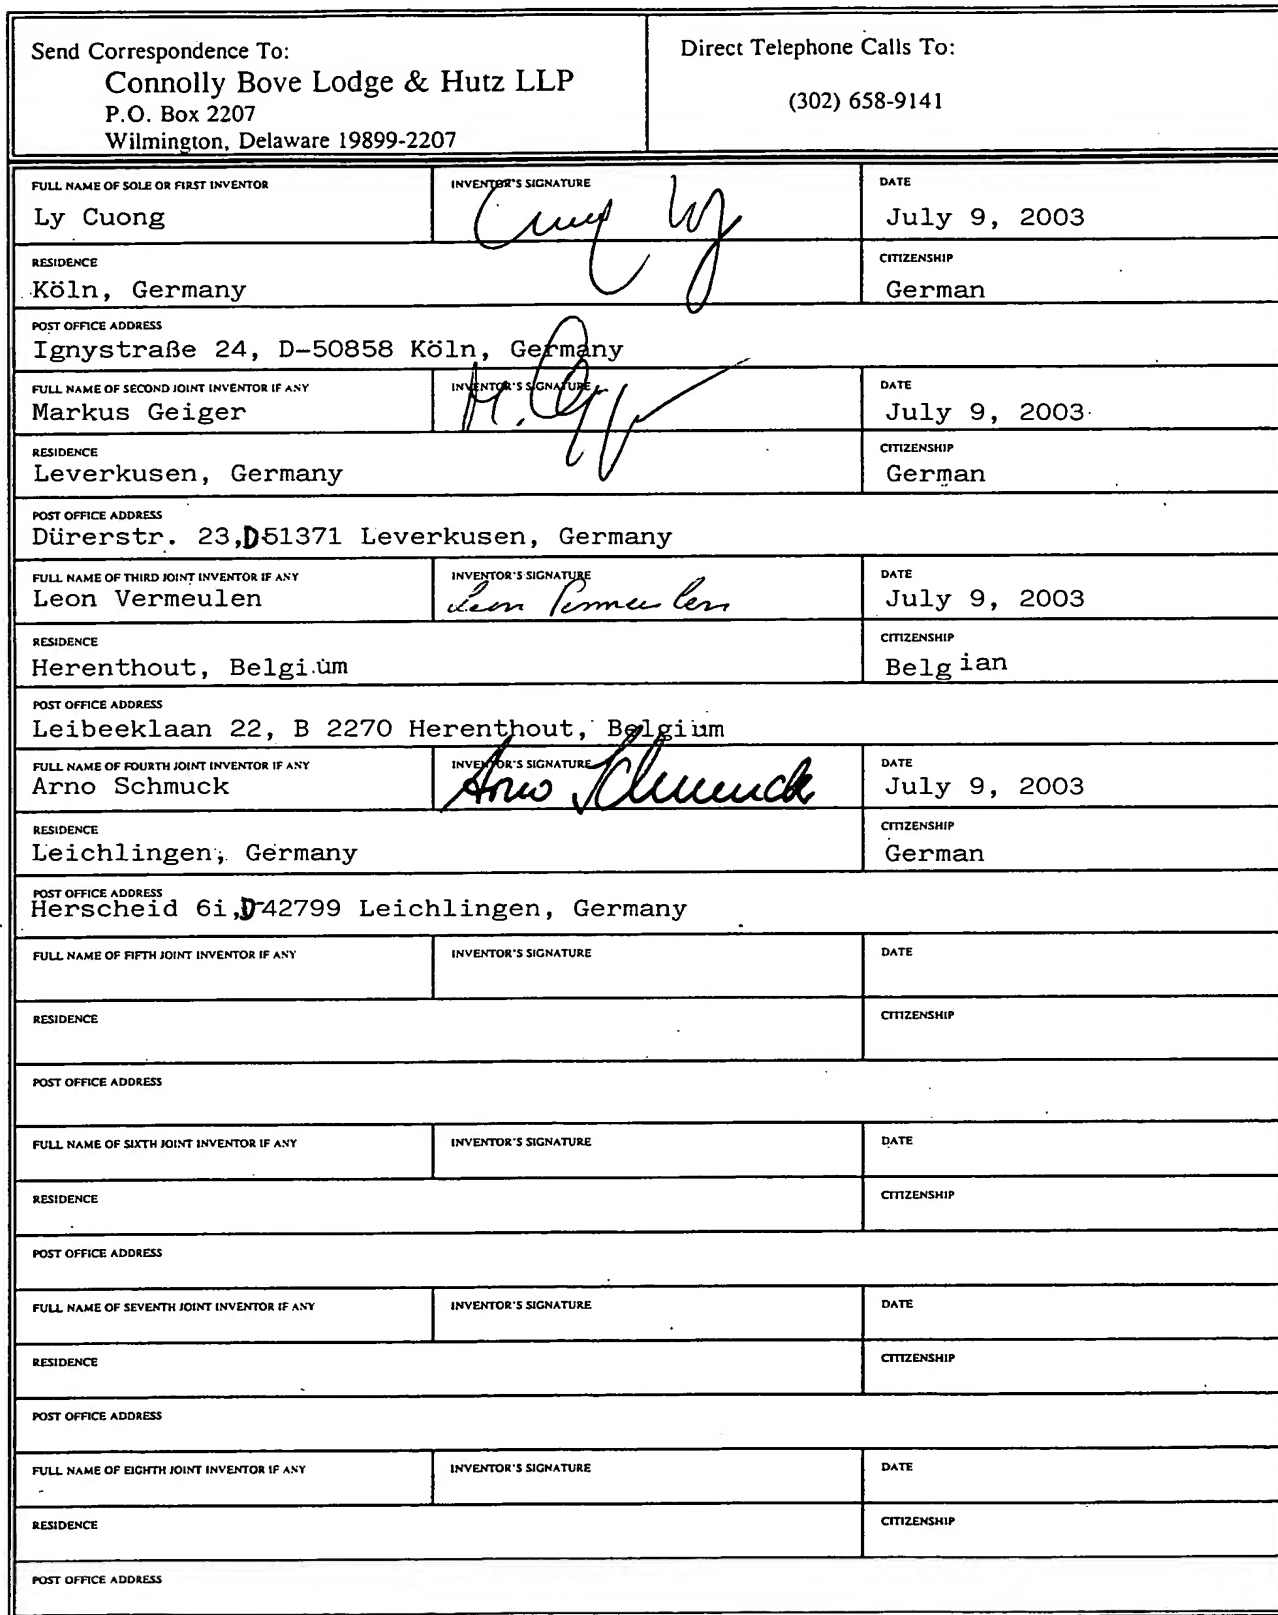 Send Correspondence To:
Connolly Bove Lodge & Hutz LLP
P.O. Box 2207
Wilmington, Delaware 19899-2207
Direct Telephone Calls To:
(302) 658-9141
FULL NAME OF SOLE OR FIRST INVENTOR INVENTOR'S SIGNATURE DATE
Ly Cuong Cuong Ly July 9, 2003
RESIDENCE CITIZENSHIP
Köln, Germany German
POST OFFICE ADDRESS
Ignystraße 24, D-50858 Köln, Germany
FULL NAME OF SECOND JOINT INVENTOR IF ANY INVENTOR'S SIGNATURE DATE
Markus Geiger M. July 9, 2003
RESIDENCE CITIZENSHIP
Leverkusen, Germany German
POST OFFICE ADDRESS
Dürerstr. 23, D51371 Leverkusen, Germany
FULL NAME OF THIRD JOINT INVENTOR IF ANY INVENTOR'S SIGNATURE DATE
Leon Vermeulen Leon Vermeulen July 9, 2003
RESIDENCE CITIZENSHIP
Herenthout, Belgium Belgian
POST OFFICE ADDRESS
Leibeeklaan 22, B 2270 Herenthout, Belgium
FULL NAME OF FOURTH JOINT INVENTOR IF ANY INVENTOR'S SIGNATURE DATE
Arno Schmuck Arno Schmuck July 9, 2003
RESIDENCE CITIZENSHIP
Leichlingen, Germany German
POST OFFICE ADDRESS
Herscheid 6i, D-42799 Leichlingen, Germany
FULL NAME OF FIFTH JOINT INVENTOR IF ANY INVENTOR'S SIGNATURE DATE
RESIDENCE CITIZENSHIP
POST OFFICE ADDRESS
FULL NAME OF SIXTH JOINT INVENTOR IF ANY INVENTOR'S SIGNATURE DATE
RESIDENCE CITIZENSHIP
POST OFFICE ADDRESS
FULL NAME OF SEVENTH JOINT INVENTOR IF ANY INVENTOR'S SIGNATURE DATE
RESIDENCE CITIZENSHIP
POST OFFICE ADDRESS
FULL NAME OF EIGHTH JOINT INVENTOR IF ANY INVENTOR'S SIGNATURE DATE
RESIDENCE CITIZENSHIP
POST OFFICE ADDRESS